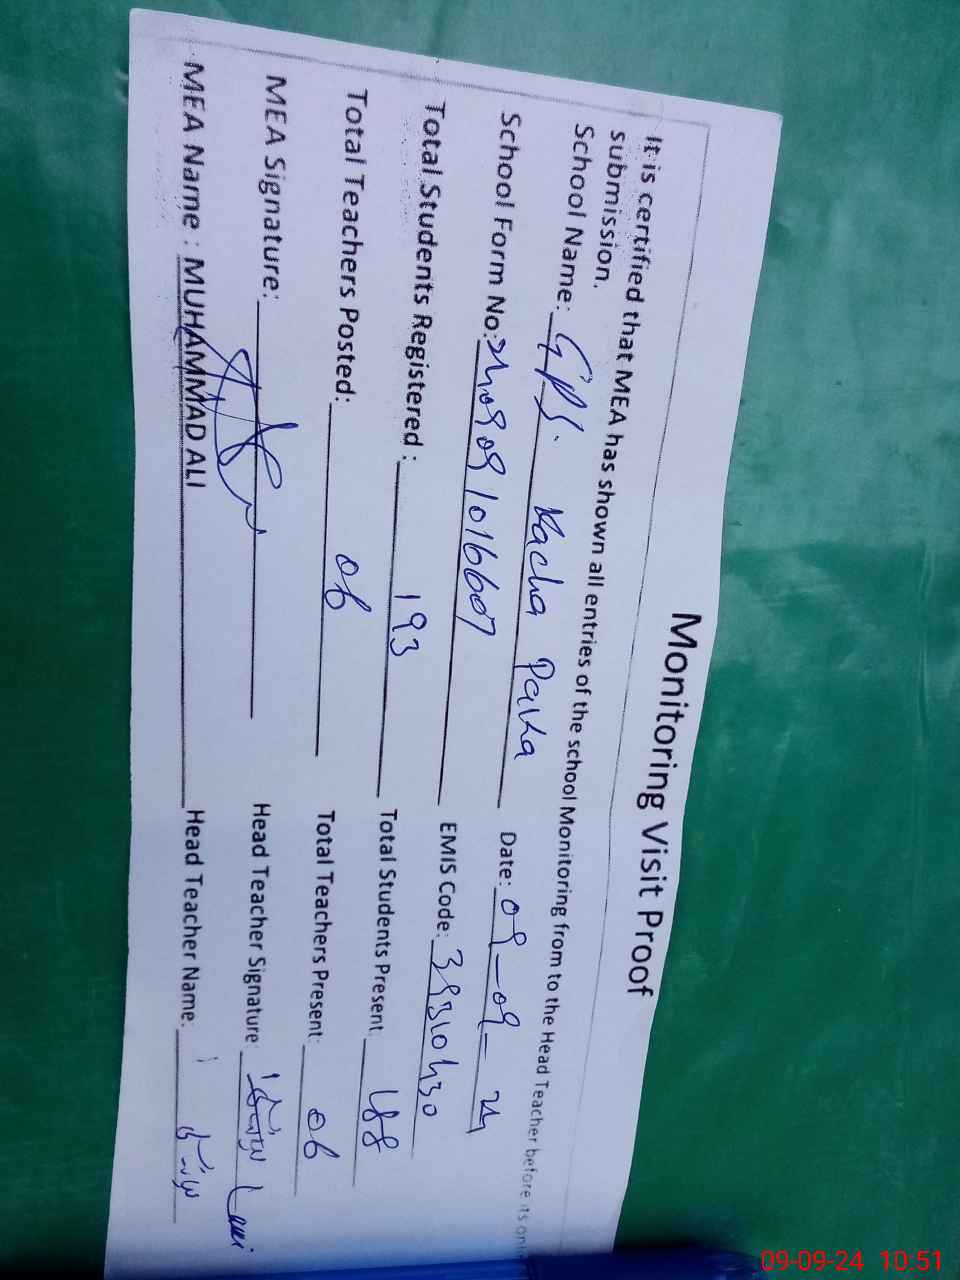 Monitoring Visit Proof
It is certified that MEA has shown all entries of the school Monitoring from to the Head Teacher before its
submission.
School Name: GPS. Kacha Paka Date: 09-09-24
School Form No: 2409091016607 EMIS Code: 39310430
Total Students Registered : 193 Total Students Present: 188
Total Teachers Posted: 06 Total Teachers Present: 06
MEA Signature: Head Teacher Signature:
MEA Name : MUHAMMAD ALI Head Teacher Name:
09-09-24 10:51